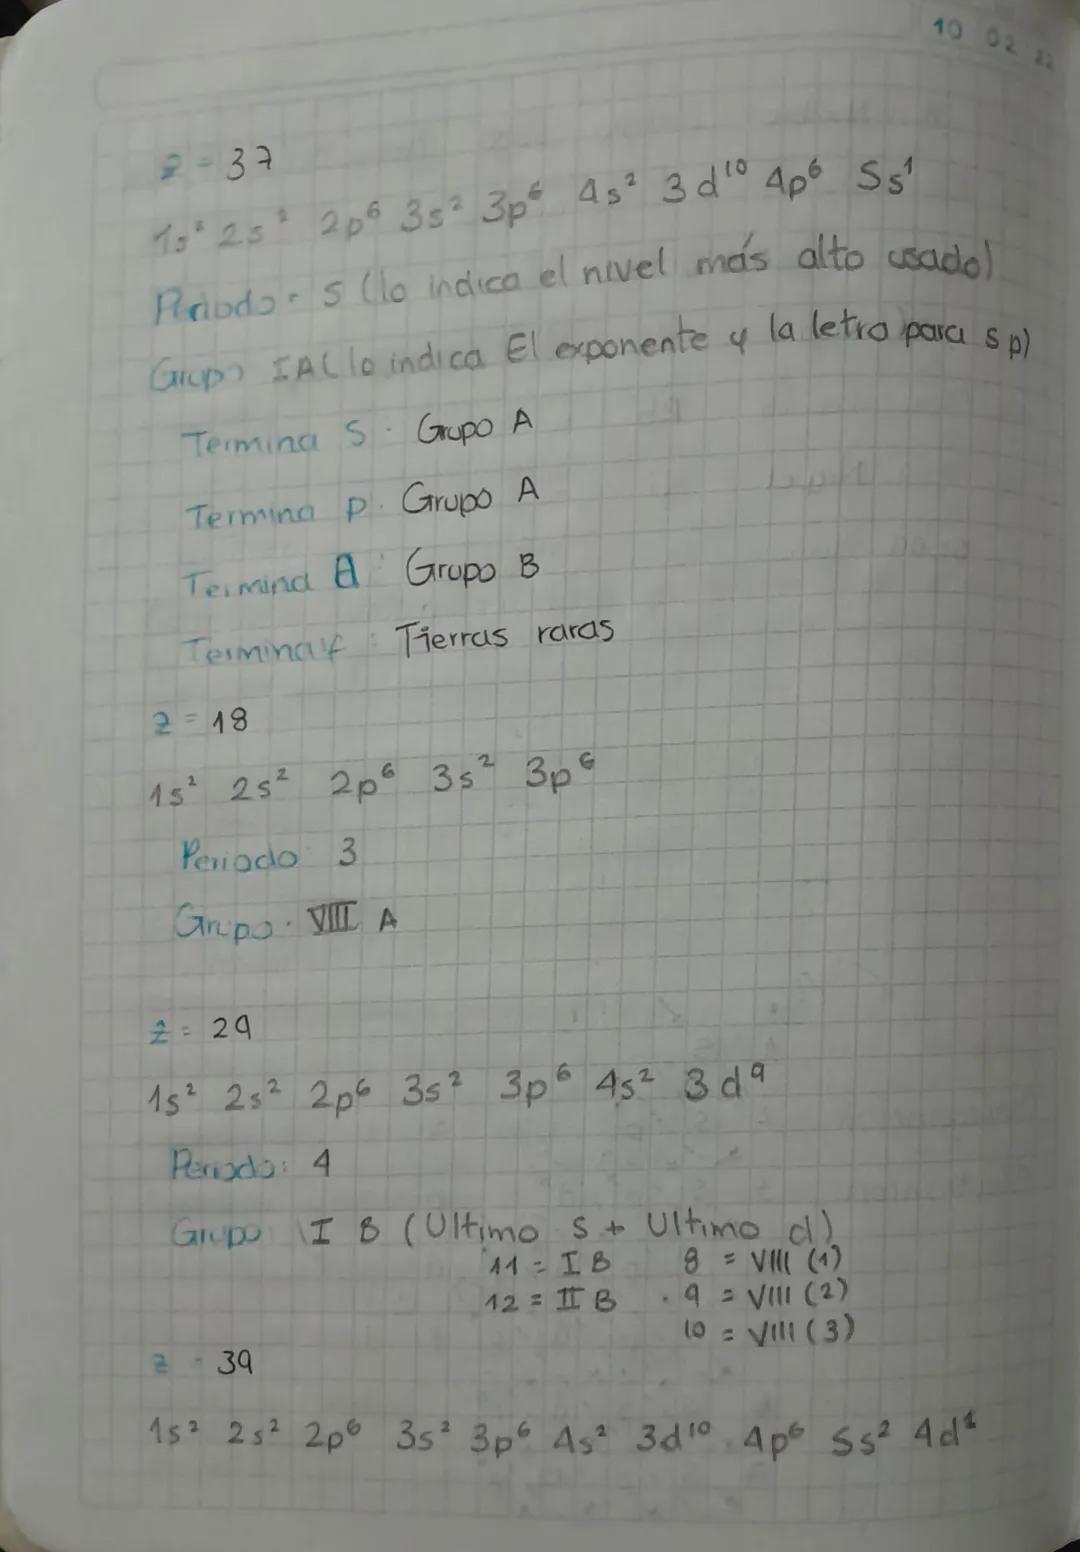 10 02 22
z = 37
1s² 2s² 2p⁶ 3s² 3p⁶ 4s² 3d¹⁰ 4p⁶ 5s¹
Periodo: 5 (lo indica el nivel más alto usado)
Grupo IA (lo indica El exponente y la letra para s p)
Termina s: Grupo A
Termina p: Grupo A
Termina d: Grupo B
Termina f: Tierras raras
z = 18
1s² 2s² 2p⁶ 3s² 3p⁶
Periodo: 3
Grupo: VIII A
z = 29
1s² 2s² 2p⁶ 3s² 3p⁶ 4s² 3d⁹
Periodo: 4
Grupo I B (Ultimo s + Ultimo d)
11 = I B 8 = VIII (1)
12 = II B . 9 = VIII (2)
10 = VIII (3)
z = 39
1s² 2s² 2p⁶ 3s² 3p⁶ 4s² 3d¹⁰ 4p⁶ 5s² 4d¹